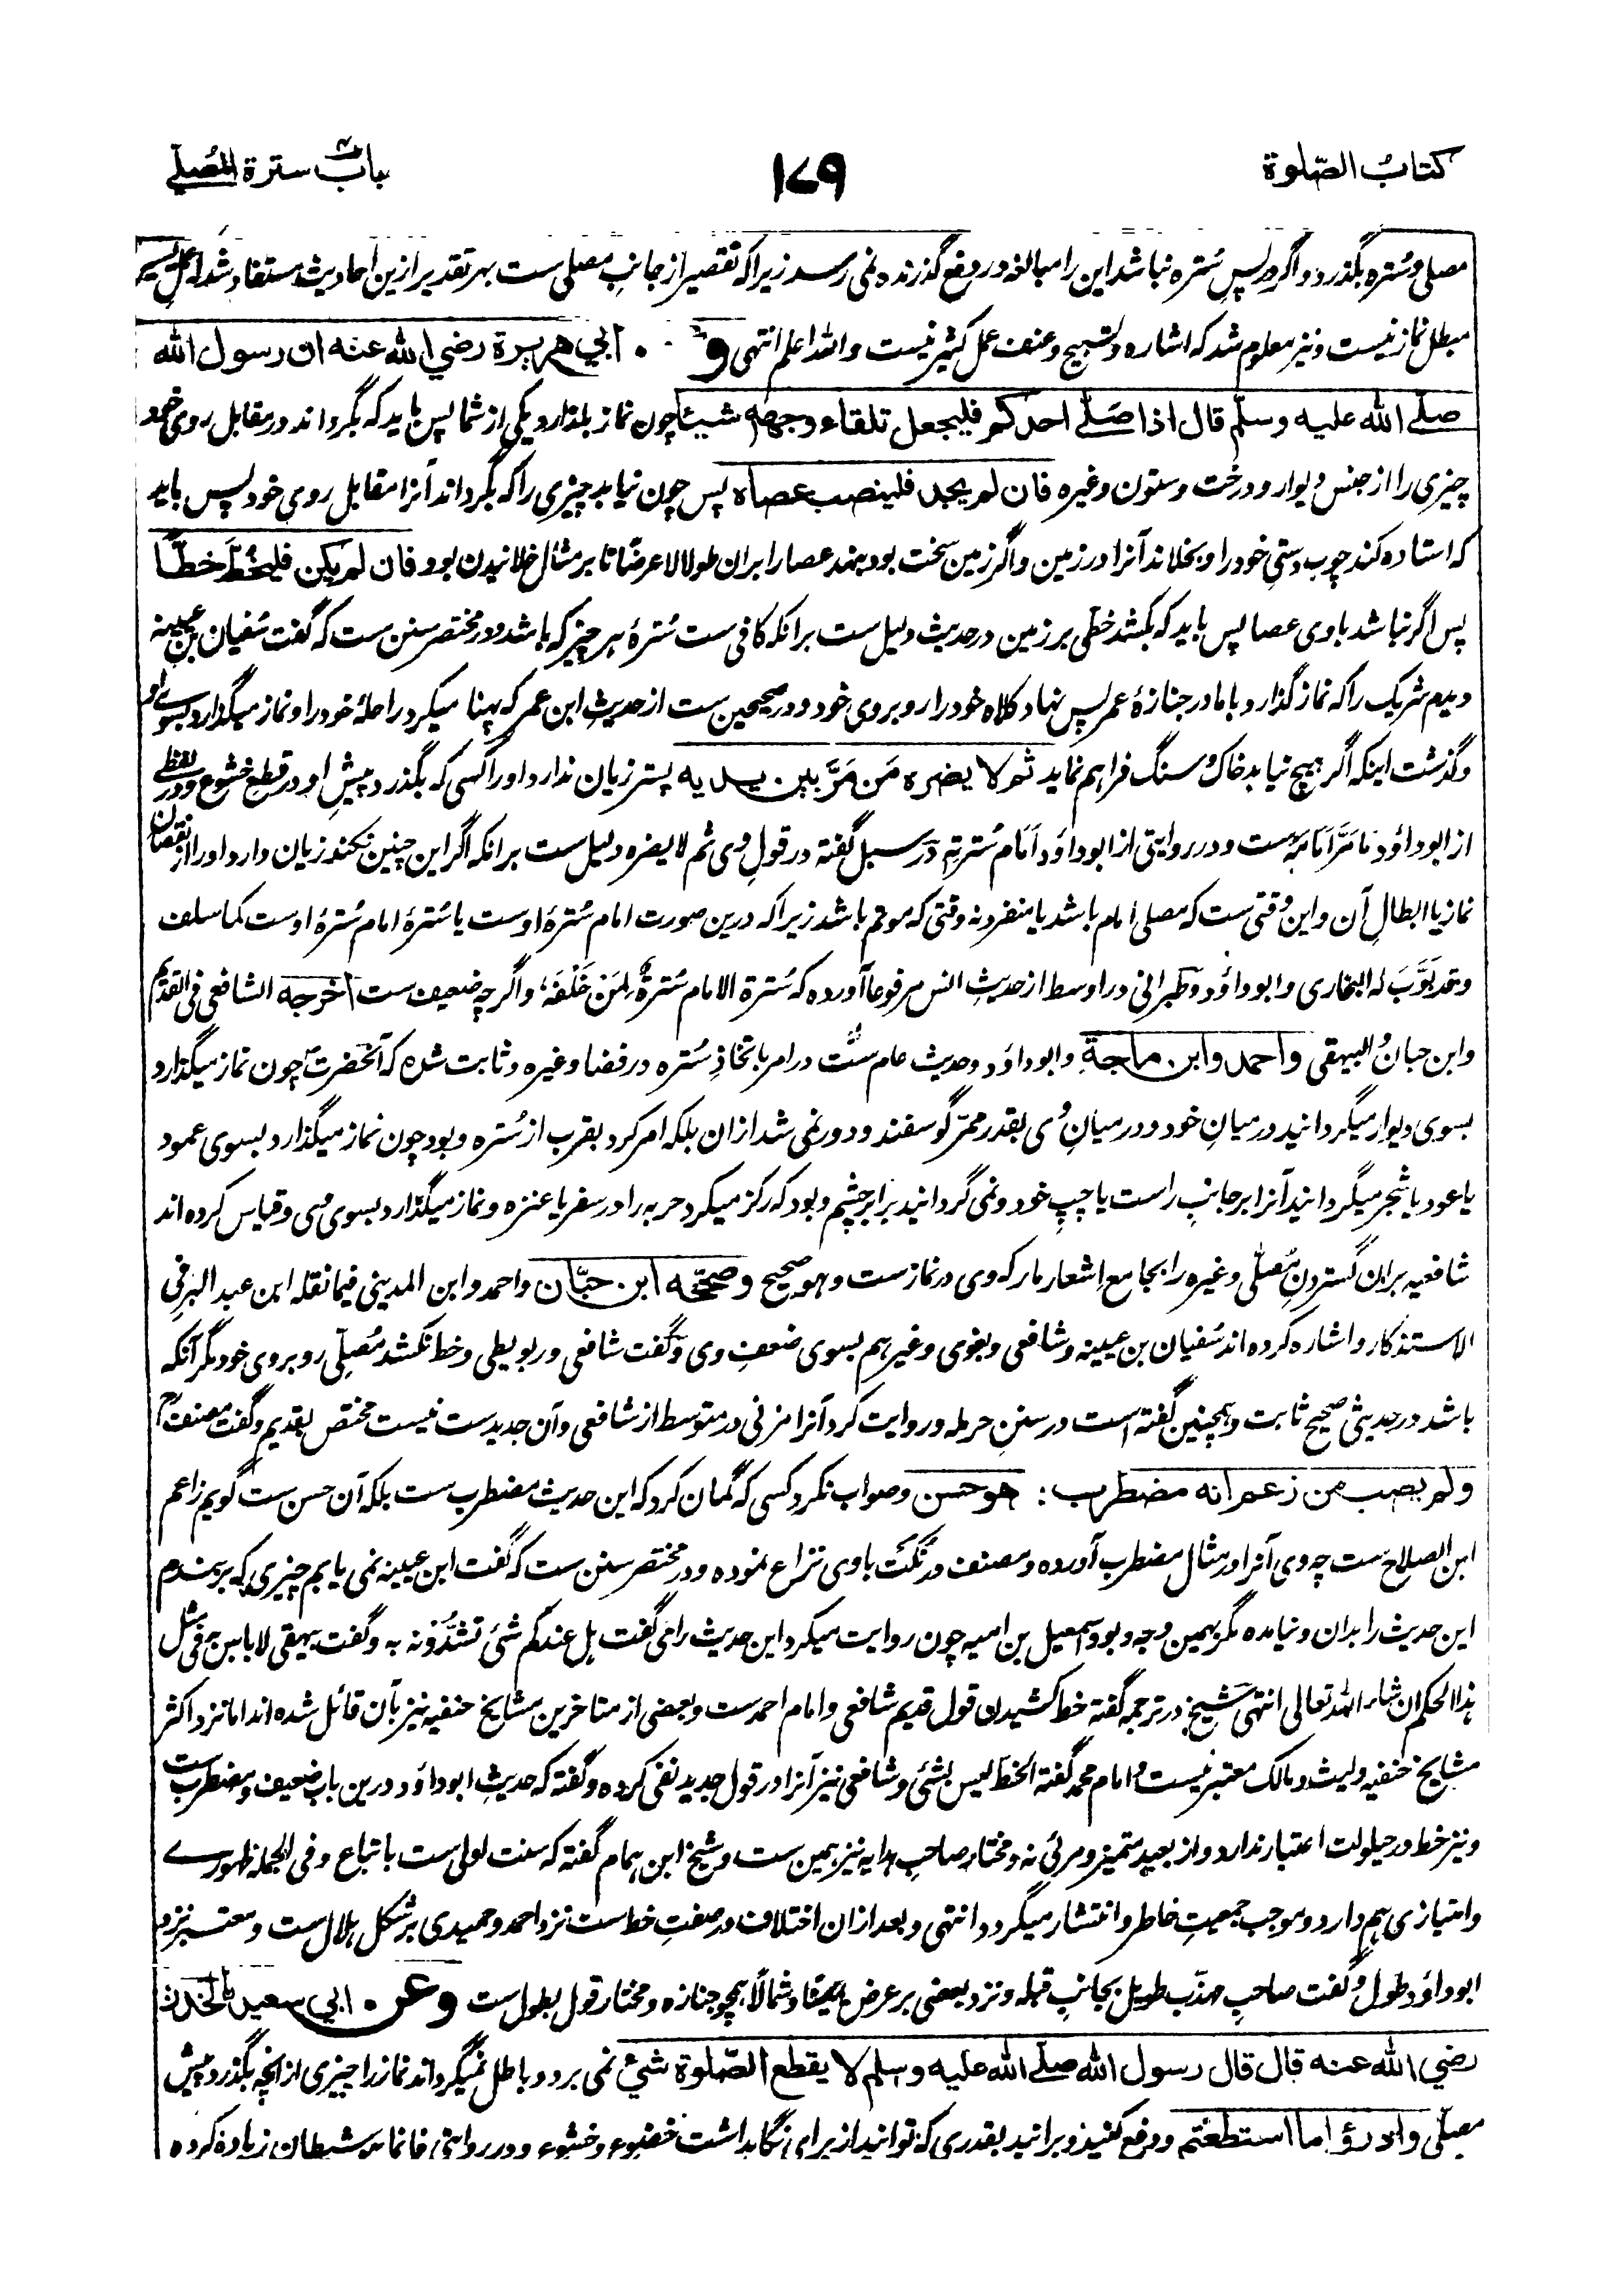 كتابُ الصّلوة
١٧٩
بابُ سترة المُصلّے
مصلی و سُتره بگذرد و اگر در پسِ سُتره نباشد این را مبالغه در دفع گذرنده نمی رسد زیرا که تقصیر از جانبِ مصلی ست بهر تقدیر ازین احادیث مستفاد شد که عمل یسیر
مبطل نماز نیست و نیز معلوم شد که اشاره و تسبیح و عنف عمل کثیر نیست والله اعلم انتهی و ابي هريرة رضي الله عنه ان رسول الله
صلّے الله عليه وسلّم قال اذا صَلّے احدكم فليجعل تلقاء وجهه شيئا چون نماز بگذارد یکی از شما پس باید که بگرداند در مقابل روی خود
چیزی را از جنس دیوار و درخت و ستون و غیره فان لم يجد فلينصب عصاه پس چون نیابد چیزی را که بگرداند آنرا مقابل روی خود پس باید
که استاده کند چوب دستیِ خود را و بخلاند آنرا در زمین و اگر زمین سخت بود بنهد عصا را بران طولا لا عرضًا تا بر مثال خلانیدن بود فان لم يكن فليخُطَّ خطًّا
پس اگر نباشد با وی عصا پس باید که بکشد خطی بر زمین در حدیث دلیل ست برانکه کافی ست سُترهٔ هر چیز که باشد و در مختصر سنن ست که گفت سُفیان بن عیینه
دیدم شریک را که نماز گذارد با ما در جنازهٔ عمر پس نهاد کلاه خود را روبروی خود و در صحیحین ست از حدیثِ ابن عمر که پهنا میکرد راحلهٔ خود را و نماز میگذارد بسوے او
و گذشت اینکه اگر هیچ نیابد خاک و سنگ فراهم نماید ثم لا يضره مَن مَرَّ بين يديه پستر زیان ندارد او را کسی که بگذرد پیشِ او در قطعِ خشوع و در لفظے
از ابو داؤد مَا مَرَّ اَمَامَهٗ ست و در روایتی از ابو داؤد اَمَام سُترتِه در سبل گفته در قولِ وی ثم لا یضره دلیل ست برانکه اگر این چنین نکند زیان دارد او را از نقصان
نماز یا ابطالِ آن و این وقتی ست که مصلی امام باشد یا منفرد نه وقتی که موتم باشد زیرا که درین صورت امام سُترهٔ اوست یا سُترهٔ امام سُترهٔ اوست کما سلف
و قد بَوَّبَ له البخاری و ابو داؤد و طبرانی در اوسط از حدیثِ انس مرفوعا آورده که سُترة الامام سُترةٌ لِمَن خَلْفَهٗ و اگر چه ضعیف ست اخرجه الشافعی فی القدیم
و ابن حبان و البیهقی واحمد وابن ماجة و ابو داؤد و حدیث عام ست در امر باتخاذِ سُتره در فضا و غیره و ثابت شده که آنحضرت چون نماز میگذارد
بسوی دیوار میگردانید در میانِ خود و در میانِ وُی بقدر ممرّ گوسفند و دور نمی شد ازان بلکه امر کرد بقرب از سُتره و بود چون نماز میگذارد بسوی عمود
یا عود یا شجر میگردانید آنرا بر جانبِ راست یا چپِ خود و نمی گردانید برابر چشم و بود که رکز میکرد حربه را در سفر یا عنزه و نماز میگذارد بسوی وی و قیاس کرده اند
شافعیه بران گستردنِ مُصلّی و غیره را بجامع اِشعار مار که وی در نماز ست و هو صحیح وصحّحه ابن حبّان و احمد و ابن المدینی فیما نقله ابن عبد البر فی
الاستذکار و اشاره کرده اند سُفیان بن عیینه و شافعی و بغوی و غیر هم بسوی ضعفِ وی و گفت شافعی در بویطی و خط نکشد مُصلّی روبروی خود مگر آنکه
باشد در حدیثی صحیح ثابت و همچنین گفته است در سننِ حرمله و روایت کرد آنرا مزنی در متوسط از شافعی و آن جدید ست نیست مختص بقدیم و گفت مصنف رح
ولم يصب من زعم انه مضطرب: هو حسن و صواب نکرد کسی که گمان کرد که این حدیث مضطرب ست بلکه آن حسن ست گویم زاعم
ابن الصلاح ست چه وی آنرا در مثال مضطرب آورده و مصنف در نُکَت با وی نزاع نموده و در مختصر سنن ست که گفت ابن عیینه نمی یابم چیزی که بر بندم
این حدیث را بدان و نیامده مگر بهمین وجه و بود اسمعیل بن امیه چون روایت میکرد این حدیث را می گفت هل عندکم شئ تشدُّونه به و گفت بیهقی لا باس به فی مثل
هذا الحکم ان شاء الله تعالی انتهی شیخ در ترجمه گفته خط کشیدن قول قدیم شافعی و امام احمد ست و بعضی از متاخرین مشایخ حنفیه نیز بآن قائل شده اند اما نزد اکثر
مشایخ حنفیه و لیث و مالک معتبر نیست و امام محمد گفته الخط لیس بشئی و شافعی نیز آنرا در قول جدید نفی کرده و گفته که حدیثِ ابو داؤد درین باب ضعیف و مضطرب ست
و نیز خط در حیلولت اعتبار ندارد و از بعید متمیز و مرئی نه و مختار صاحبِ هدایه نیز همین ست و شیخ ابن همام گفته که سنت اولی ست باتباع و فی الجمله ظهورے
و امتیازی هم دارد و موجب جمعیتِ خاطر و انتشار میگردد انتهی و بعد ازان اختلاف در صفتِ خط ست نزد احمد و حمیدی بر شکل هلال ست و معتبر نزد
ابو داؤد طول و گفت صاحبِ مهذّب طویل بجانبِ قبله و نزد بعضی بر عرض یمینًا و شمالًا همچو جنازه و مختار قول بطول ست وعن ابي سعيد الخدري
رضي الله عنه قال قال رسول الله صلّے الله عليه وسلم لا يقطع الصّلوة شيءٌ نمی برد و باطل نمیگرداند نماز را چیزی از آنچه بگذرد پیش
مصلّی وادرؤ اما استطعتم و دفع کنید و برانید بقدری که توانید از برای نگاهداشت خضوع و خشوع و در روایتی فانما هو شیطان زیاده کرده